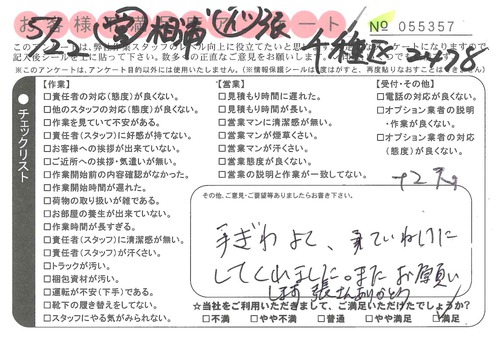 お客様満足アンケート
№ 055357
5/22 営 相浦 張
千種区 2478
このアンケートは、弊社作業スタッフのレベル向上に役立てたいと思います。
記入後シールを上に貼って下さい。数多くの正直なご意見をお願いします。
※このアンケートは、アンケート目的以外には使用いたしません。(※情報保護シールは1度はがすと、再度貼りなおすことはできません)
チェックリスト
【作業】
□責任者の対応(態度)が良くない。
□他のスタッフの対応(態度)が良くない。
□作業を見ていて不安がある。
□責任者(スタッフ)に好感が持てない。
□お客様への挨拶が出来ていない。
□ご近所への挨拶・気遣いが無い。
□作業開始前の内容確認がなかった。
□作業開始時間が遅れた。
□荷物の取り扱いが雑である。
□お部屋の養生が出来ていない。
□作業時間が長すぎる。
□責任者(スタッフ)に清潔感が無い。
□責任者(スタッフ)が汗くさい。
□トラックが汚い。
□梱包資材が汚い。
□運転が不安(下手)である。
□靴下の履き替えをしてない。
□スタッフにやる気がみられない。
【営業】
□見積もり時間に遅れた。
□見積もり時間が長い。
□営業マンに清潔感が無い。
□営業マンが煙草くさい。
□営業マンが汗くさい。
□営業態度が良くない。
□営業の説明と作業が一致してない。
【受付・その他】
□電話の対応が良くない。
□オプション業者の説明・作業が良くない。
□オプション業者の対応(態度)が良くない。
+2
その他、ご意見・ご要望等ありましたらお書き下さい。
手ぎわよく、ていねいに
してくれました。また お願い
します 張さんありがとう
☆当社をご利用いただきまして、ご満足いただけたでしょうか?
□不満 □やや不満 □普通 □やや満足 □満足